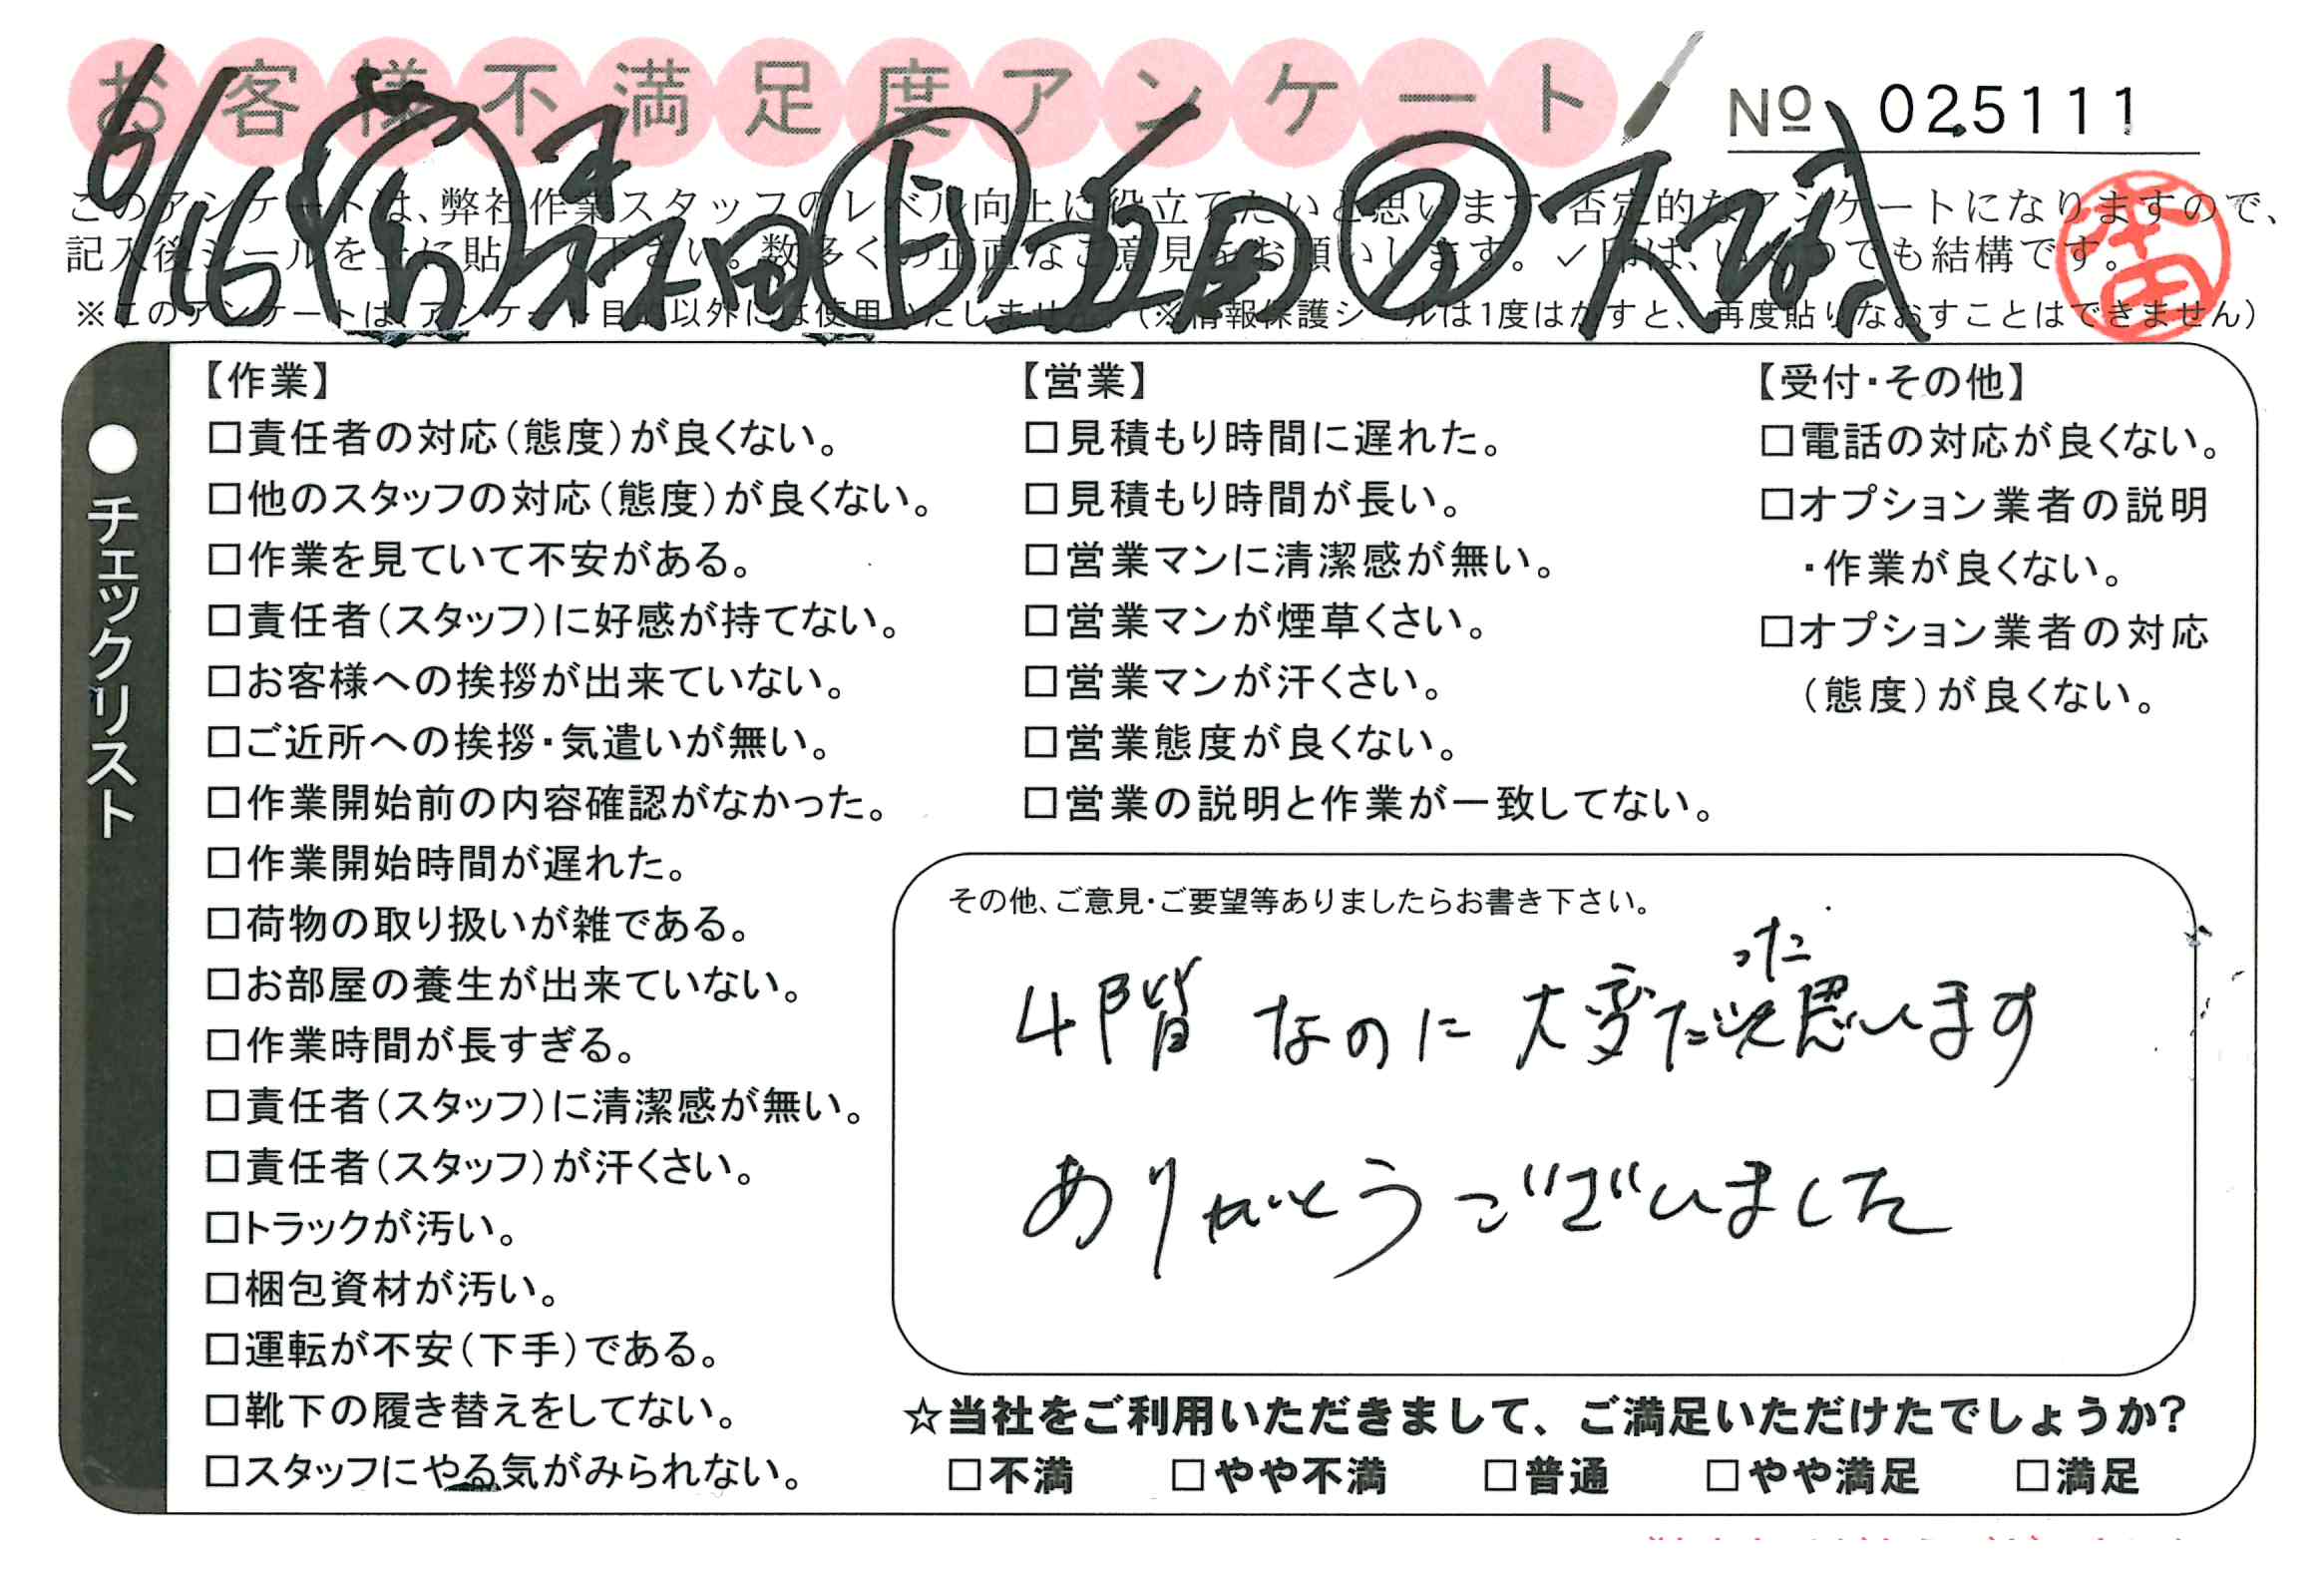 お客様不満足度アンケート
№ 025111
6/16
このアンケートは、弊社作業スタッフのレベル向上に役立てたいと思います。否定的なアンケートになりますので、
記入後シールを上に貼って下さい。数多くの正直なご意見をお願いします。✓印は、いくつでも結構です。
※このアンケートは、アンケート目的以外には使用いたしません。(※情報保護シールは1度はがすと、再度貼りなおすことはできません)
●チェックリスト
【作業】
□責任者の対応(態度)が良くない。
□他のスタッフの対応(態度)が良くない。
□作業を見ていて不安がある。
□責任者(スタッフ)に好感が持てない。
□お客様への挨拶が出来ていない。
□ご近所への挨拶・気遣いが無い。
□作業開始前の内容確認がなかった。
□作業開始時間が遅れた。
□荷物の取り扱いが雑である。
□お部屋の養生が出来ていない。
□作業時間が長すぎる。
□責任者(スタッフ)に清潔感が無い。
□責任者(スタッフ)が汗くさい。
□トラックが汚い。
□梱包資材が汚い。
□運転が不安(下手)である。
□靴下の履き替えをしてない。
□スタッフにやる気がみられない。
【営業】
□見積もり時間に遅れた。
□見積もり時間が長い。
□営業マンに清潔感が無い。
□営業マンが煙草くさい。
□営業マンが汗くさい。
□営業態度が良くない。
□営業の説明と作業が一致してない。
【受付・その他】
□電話の対応が良くない。
□オプション業者の説明
・作業が良くない。
□オプション業者の対応
(態度)が良くない。
その他、ご意見・ご要望等ありましたらお書き下さい。
4階なのに大変だったと思います
ありがとうございました
☆当社をご利用いただきまして、ご満足いただけたでしょうか?
□不満 □やや不満 □普通 □やや満足 □満足